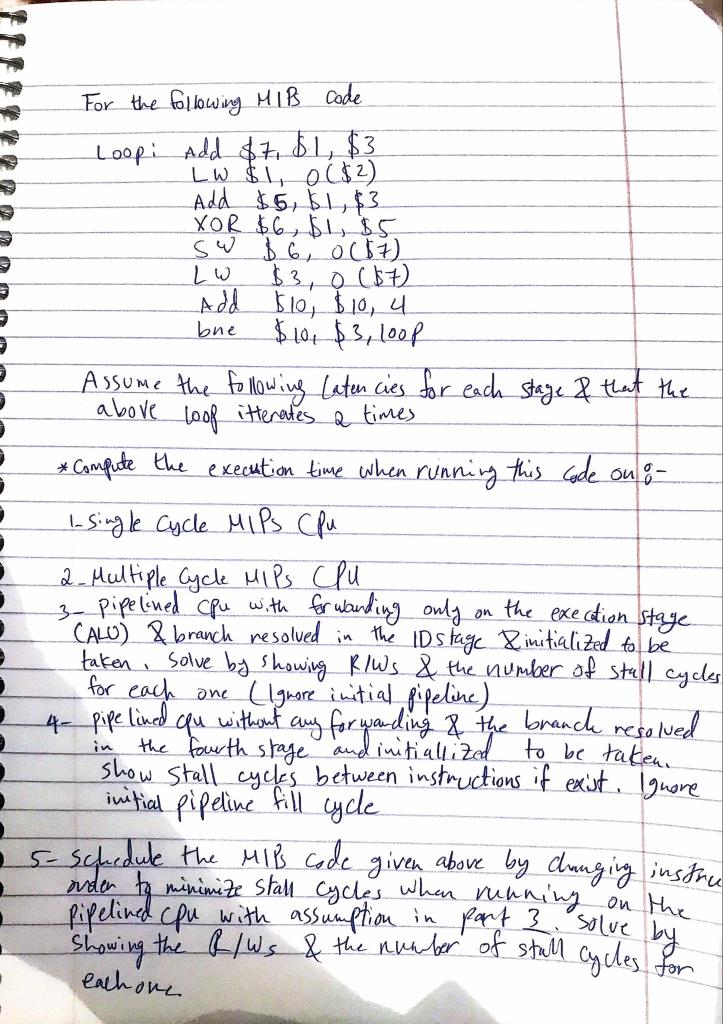 For the following MIPS code
Loop: Add $7, $1, $3
LW $1, 0($2)
Add $5, $1, $3
XOR $6, $1, $5
SW $6, 0($7)
LW $3, 0($7)
Add $10, $10, 4
bne $10, $3, loop
Assume the following latencies for each stage & that the
above loop itterates 2 times
* Compute the execution time when running this code on :-
1- Single Cycle MIPs CPu
2- Multiple Cycle MIPs CPU
3- pipelined cpu with forwarding only on the execution stage
(ALU) & branch resolved in the ID stage & initialized to be
taken, Solve by showing R/Ws & the number of stall cycles
for each one (Ignore initial pipeline)
4- pipelined cpu without any forwarding & the branch resolved
in the fourth stage and initiallized to be taken.
Show Stall cycles between instructions if exist. Ignore
initial pipeline fill cycle
5- Schedule the MIPS code given above by changing instru
order to minimize stall cycles when running on the
pipelined cpu with assumption in part 3. Solve by
showing the R/Ws & the number of stall cycles for
each one